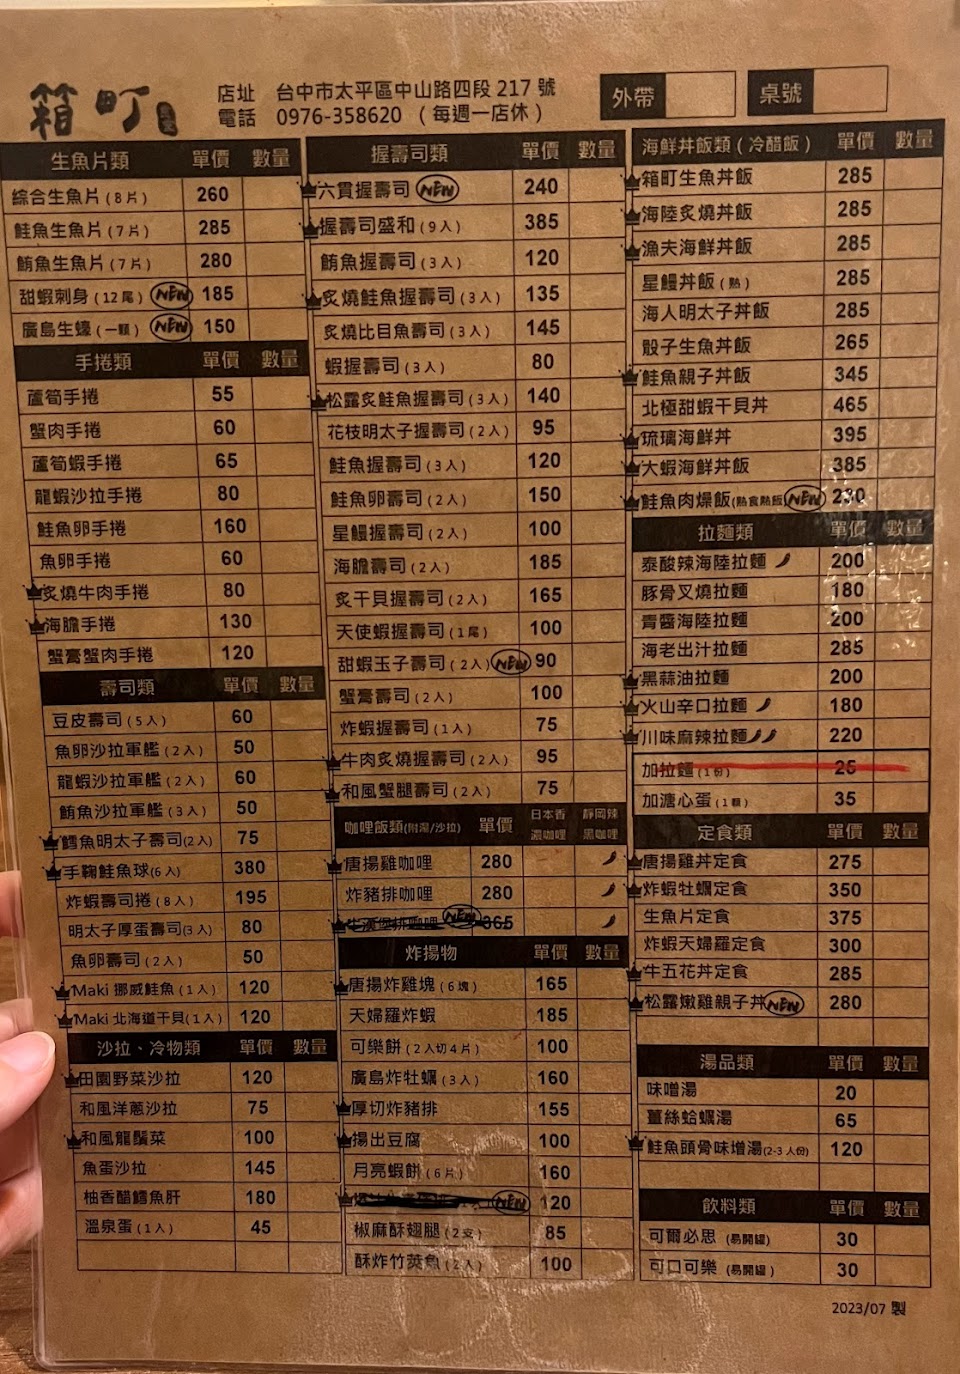 箱町
店址 台中市太平區中山路四段 217 號
電話 0976-358620 （每週一店休）
外帶
桌號
生魚片類 單價 數量
綜合生魚片 (8 片) 260
鮭魚生魚片 (7 片) 285
鮪魚生魚片 (7 片) 280
甜蝦刺身 (12 尾) NEW 185
廣島生蠔 (一顆) NEW 150
手捲類 單價 數量
蘆筍手捲 55
蟹肉手捲 60
蘆筍蝦手捲 65
龍蝦沙拉手捲 80
鮭魚卵手捲 160
魚卵手捲 60
炙燒牛肉手捲 80
海膽手捲 130
蟹膏蟹肉手捲 120
壽司類 單價 數量
豆皮壽司 (5入) 60
魚卵沙拉軍艦 (2入) 50
龍蝦沙拉軍艦 (2入) 60
鮪魚沙拉軍艦 (3入) 50
鱈魚明太子壽司(2入) 75
手鞠鮭魚球(6入) 380
炸蝦壽司捲 (8入) 195
明太子厚蛋壽司(3入) 80
魚卵壽司 (2入) 50
Maki 挪威鮭魚 (1入) 120
Maki 北海道干貝(1入) 120
沙拉、冷物類 單價 數量
田園野菜沙拉 120
和風洋蔥沙拉 75
和風龍鬚菜 100
魚蛋沙拉 145
柚香醋鱈魚肝 180
溫泉蛋 (1入) 45
握壽司類 單價 數量
六貫握壽司 NEW 240
握壽司盛和 (9入) 385
鮪魚握壽司 (3入) 120
炙燒鮭魚握壽司 (3入) 135
炙燒比目魚壽司 (3入) 145
蝦握壽司 (3入) 80
松露炙鮭魚握壽司 (3入) 140
花枝明太子握壽司 (2入) 95
鮭魚握壽司 (3入) 120
鮭魚卵壽司 (2入) 150
星鰻握壽司 (2入) 100
海膽壽司 (2入) 185
炙干貝握壽司 (2入) 165
天使蝦握壽司 (1尾) 100
甜蝦玉子壽司 (2入) NEW 90
蟹膏壽司 (2入) 100
炸蝦握壽司 (1入) 75
牛肉炙燒握壽司 (2入) 95
和風蟹腿壽司 (2入) 75
咖哩飯類(附湯/沙拉) 單價 日本香濃咖哩 靜岡辣黑咖哩
唐揚雞咖哩 280
炸豬排咖哩 280
牛漢堡排咖哩 NEW 365
炸揚物 單價 數量
唐揚炸雞塊 (6塊) 165
天婦羅炸蝦 185
可樂餅 (2入切4片) 100
廣島炸牡蠣 (3入) 160
厚切炸豬排 155
揚出豆腐 100
月亮蝦餅 (6片) 160
NEW 120
椒麻酥翅腿 (2支) 85
酥炸竹莢魚 (2入) 100
海鮮丼飯類 (冷醋飯) 單價 數量
箱町生魚丼飯 285
海陸炙燒丼飯 285
漁夫海鮮丼飯 285
星鰻丼飯 (熱) 285
海人明太子丼飯 285
骰子生魚丼飯 265
鮭魚親子丼飯 345
北極甜蝦干貝丼 465
琉璃海鮮丼 395
大蝦海鮮丼飯 385
鮭魚肉燥飯(熱食熱飯) NEW 230
拉麵類 單價 數量
泰酸辣海陸拉麵 200
豚骨叉燒拉麵 180
青醬海陸拉麵 200
海老出汁拉麵 285
黑蒜油拉麵 200
火山辛口拉麵 180
川味麻辣拉麵 220
加拉麵 (1份) 25
加溏心蛋 (1顆) 35
定食類 單價 數量
唐揚雞丼定食 275
炸蝦牡蠣定食 350
生魚片定食 375
炸蝦天婦羅定食 300
牛五花丼定食 285
松露嫩雞親子丼 NEW 280
湯品類 單價 數量
味噌湯 20
薑絲蛤蠣湯 65
鮭魚頭骨味增湯(2-3人份) 120
飲料類 單價 數量
可爾必思 (易開罐) 30
可口可樂 (易開罐) 30
2023/07 製